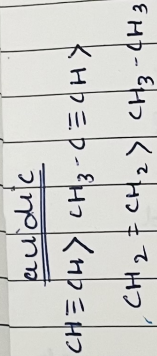 acidic
CH≡CH > CH3-C≡CH >
CH2=CH2 > CH3-CH3